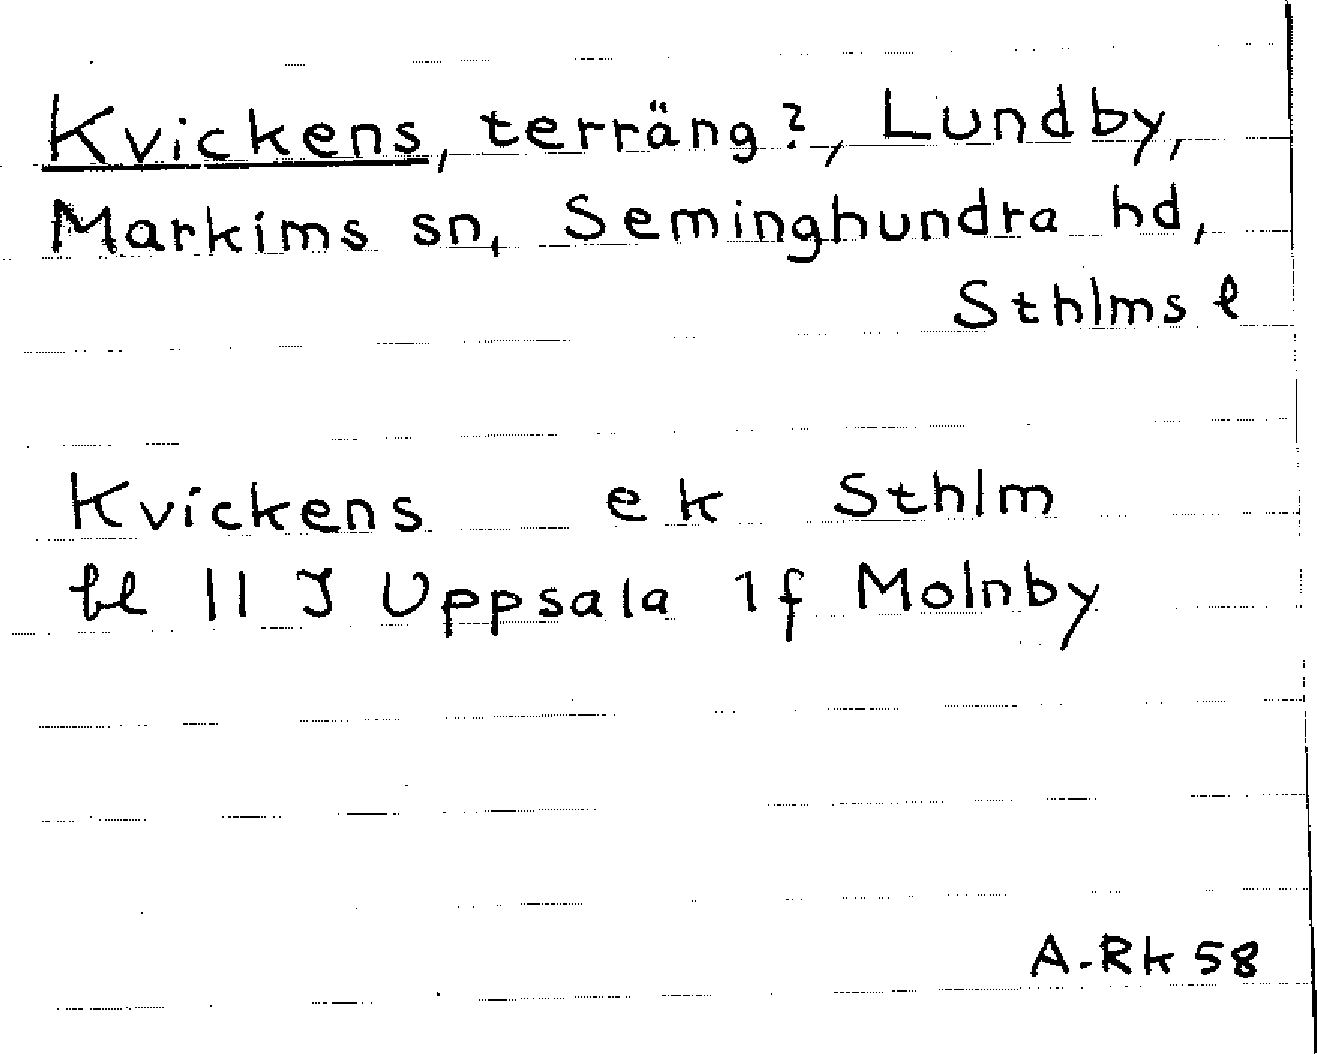 Kvickens, terräng?, Lundby,
Markims sn, Seminghundra hd,
Sthlms l
Kvickens ek Sthlm
bl 11 I Uppsala 1f Molnby
A-Rk 58